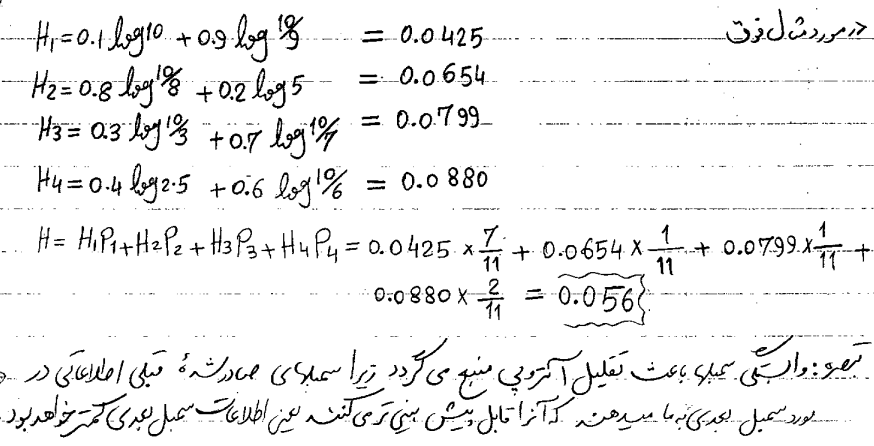 در مورد مثال فوق
H₁ = 0.1 log 10 + 0.9 log 10/9 = 0.0425
H₂ = 0.8 log 10/8 + 0.2 log 5 = 0.0654
H₃ = 0.3 log 10/3 + 0.7 log 10/7 = 0.0799
H₄ = 0.4 log 2.5 + 0.6 log 10/6 = 0.0880
H = H₁P₁ + H₂P₂ + H₃P₃ + H₄P₄ = 0.0425 × 7/11 + 0.0654 × 1/11 + 0.0799 × 1/11 +
0.0880 × 2/11 = 0.056
تبصره : وابستگی سمبلها باعث تقلیل آنتروپی منبع می گردد زیرا سمبلهای صادر شدهٔ قبلی اطلاعاتی در
مورد سمبل بعدی به ما میدهند که آنرا قابل پیش بینی تر می کنند یعنی اطلاعات سمبل بعدی کمتر خواهد بود